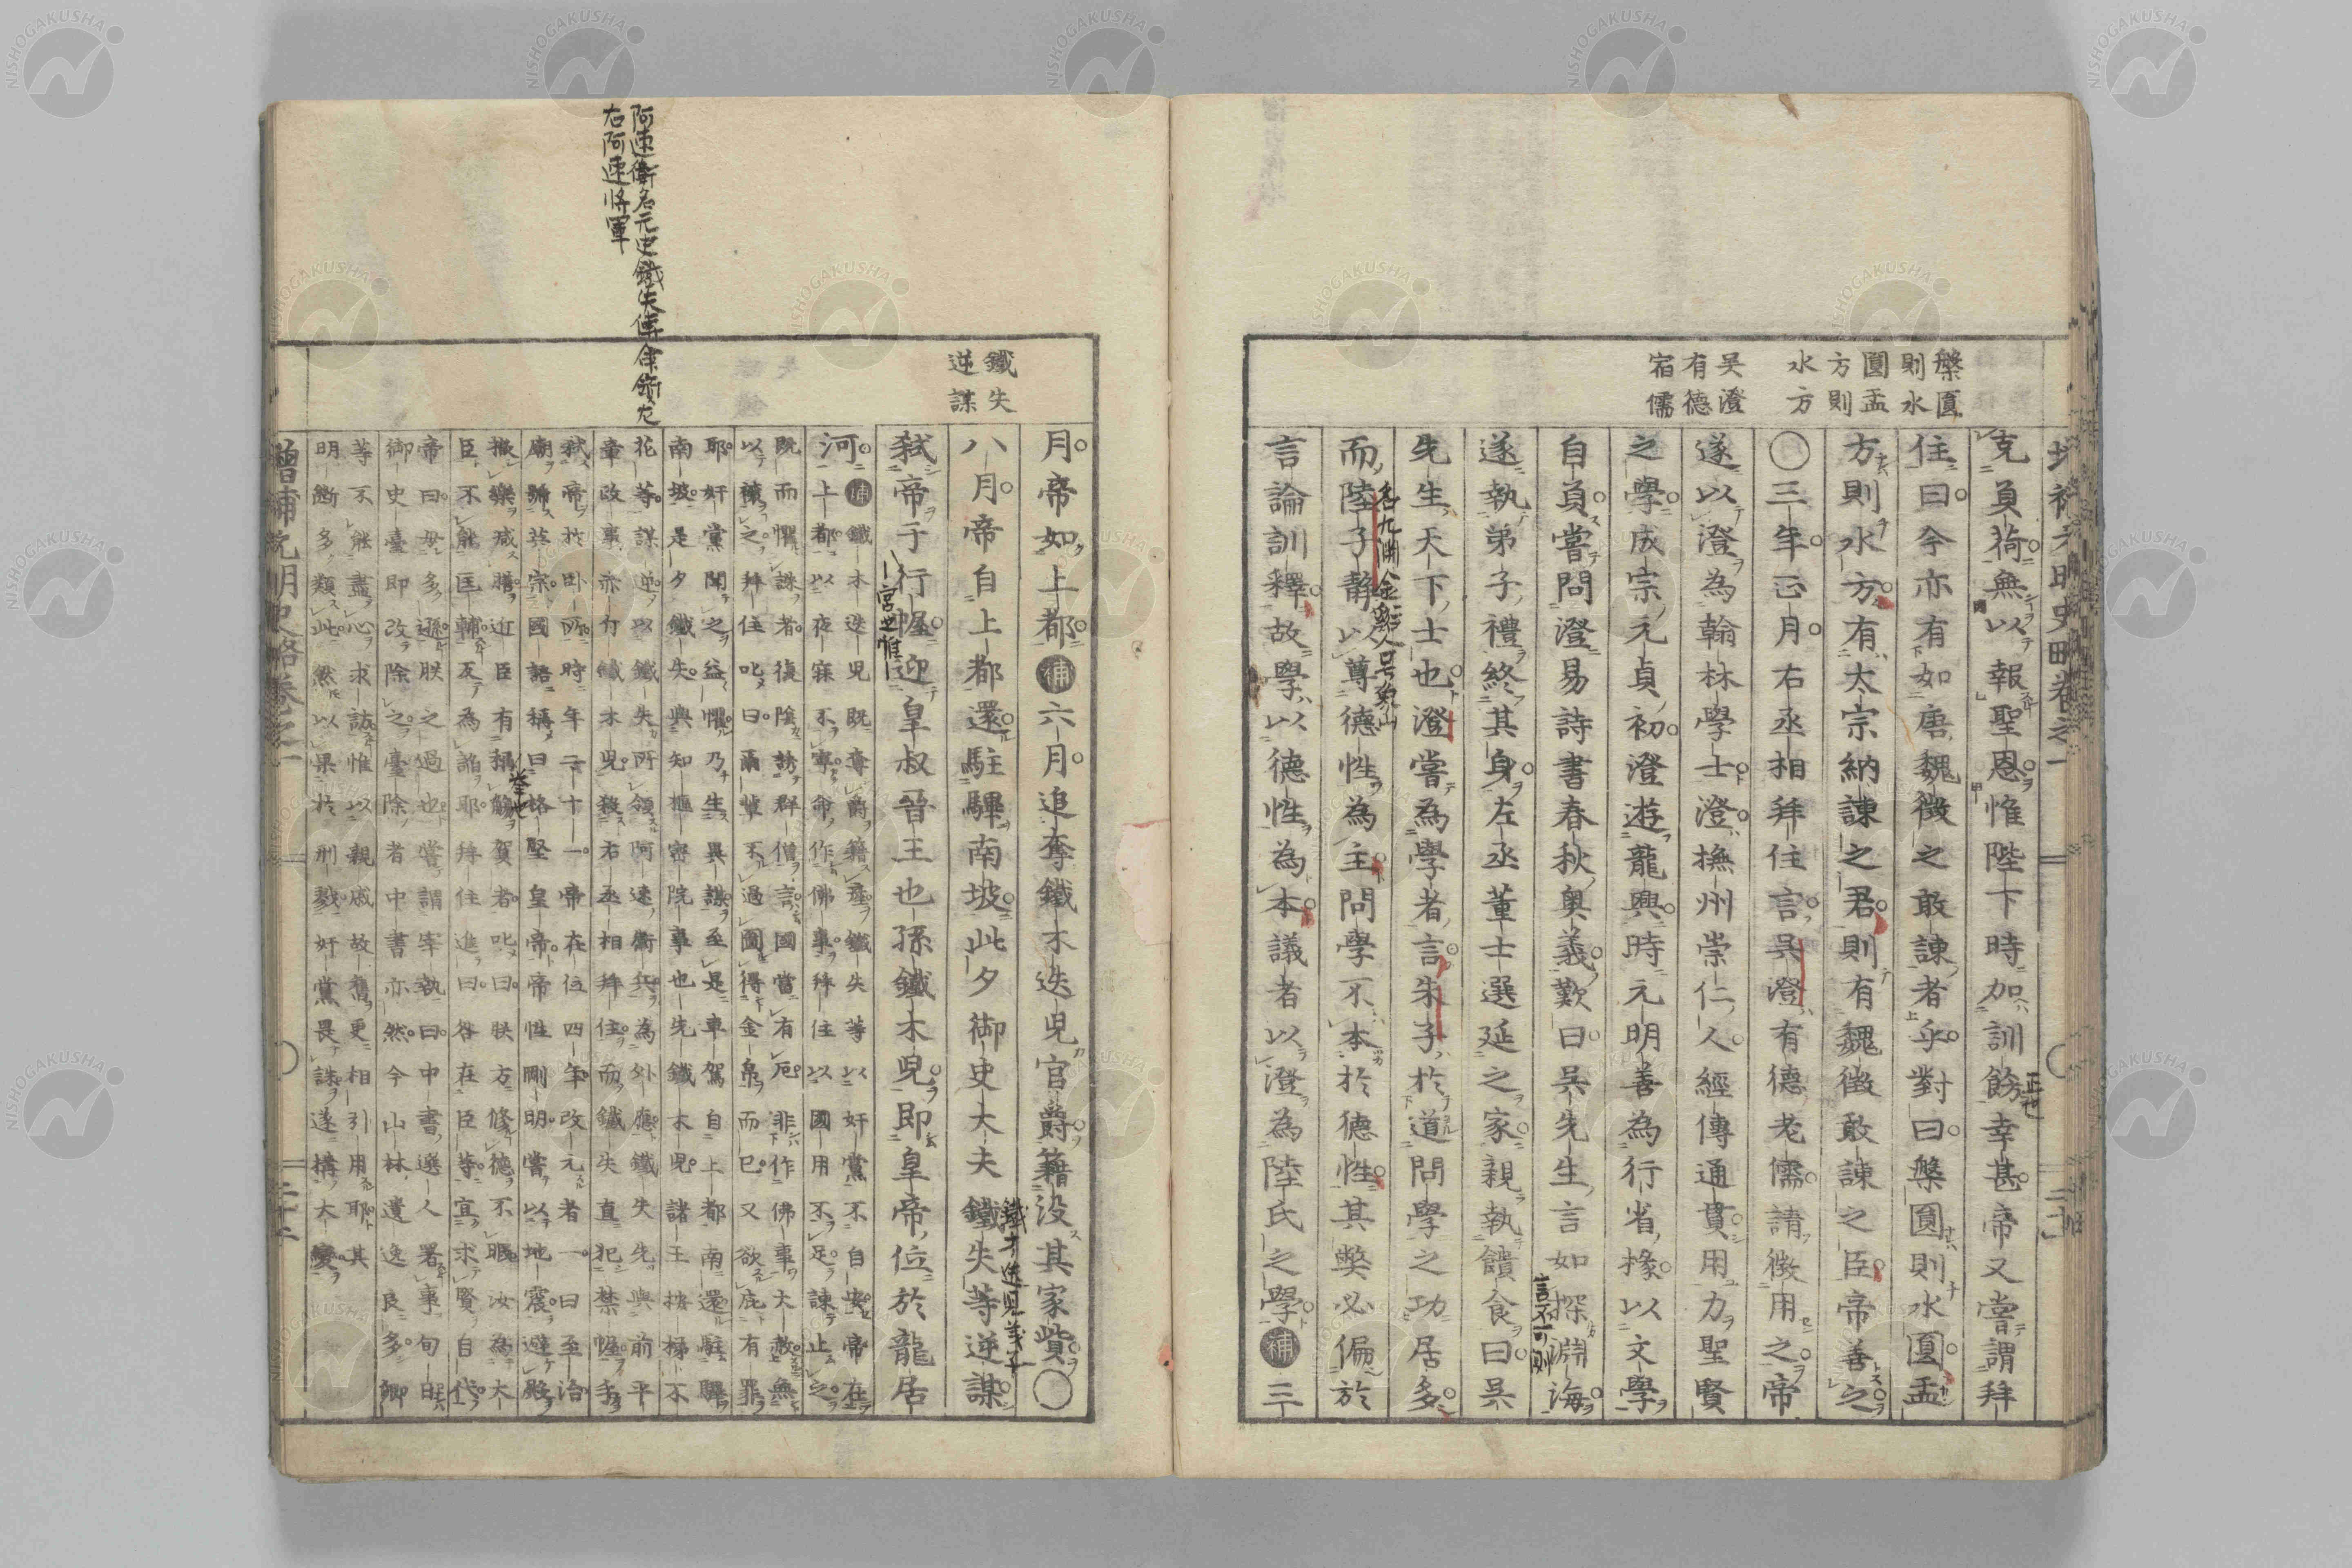 槃圓
則水
圓盂
方則
水方
吳澄
有德
宿儒
克負荷無以報聖恩惟陛下時加訓飭幸甚帝又嘗謂拜
正也
住曰今亦有如唐魏徵之敢諫者乎對曰槃圓則水圓盂
方則水方有太宗納諫之君則有魏徵敢諫之臣帝善之
〇三年正月右丞相拜住言吳澄有德老儒請徵用之帝
遂以澄為翰林學士澄撫州崇仁人經傳通貫用力聖賢
之學成宗元貞初澄遊龍興時元明善為行省掾以文學
自負嘗問澄易詩書春秋奧義歎曰吳先生言如探淵海
言不可測
遂執弟子禮終其身左丞董士選延之家親執饋食曰吳
先生天下士也澄嘗為學者言朱子於道問學之功居多
而陸子靜以尊德性為主問學不本於德性其弊必偏於
名九淵金谿人号象山
言論訓釋故學以德性為本議者以澄為陸氏之學補三
鐵失
逆謀
月帝如上都補六月追奪鐵木迭兒官爵籍没其家貲〇
八月帝自上都還駐驆南坡此夕御史大夫鐵失等逆謀
鐵才迭児義子
弑帝于行幄迎皇叔晉王也孫鐵木兒即皇帝位於龍居
宮之帷
河補鐵木迭兒既奪爵籍產鐵失等以奸黨不自安帝在
上都以夜寐不寧命作佛事拜住以國用不足諫止之
既而懼誅者復陰誘群僧言國當有厄非作佛事大赦無
以禳之拜住叱曰爾輩不過圖得金帛而已又欲庇有罪
耶奸黨聞之益懼乃生異謀至是車駕自上都南還駐驆
南坡是夕鐵失與知樞密院事也先鐵木兒諸王按梯不
花等謀逆以鐵失所領阿速衛兵為外應鐵失先與前平
章政事赤斤鐵木兒殺右丞相拜住而鐵失直犯禁幄手
弑帝於臥所時年二十一帝在位四年改元者一曰至治
廟號英宗國語稱曰格堅皇帝帝性剛明嘗以地震避殿
撤樂減膳近臣有稱觴賀者叱曰朕方修德不暇汝為大
挙也
臣不能匡輔反為諂耶拜住進曰咎在臣等宜求賢自代
帝曰毋多遜朕之過也嘗謂宰執曰中書選人署事旬日
御史臺即改除之臺除者中書亦然今山林遺逸良多卿
等不能盡心求訪惟以親戚故舊更相引用耶其
明斷多類此然以果於刑戮奸黨畏誅遂搆大變
增補元明史略卷之一
阿速衛名元史鐵失傳余領左
右阿速將軍